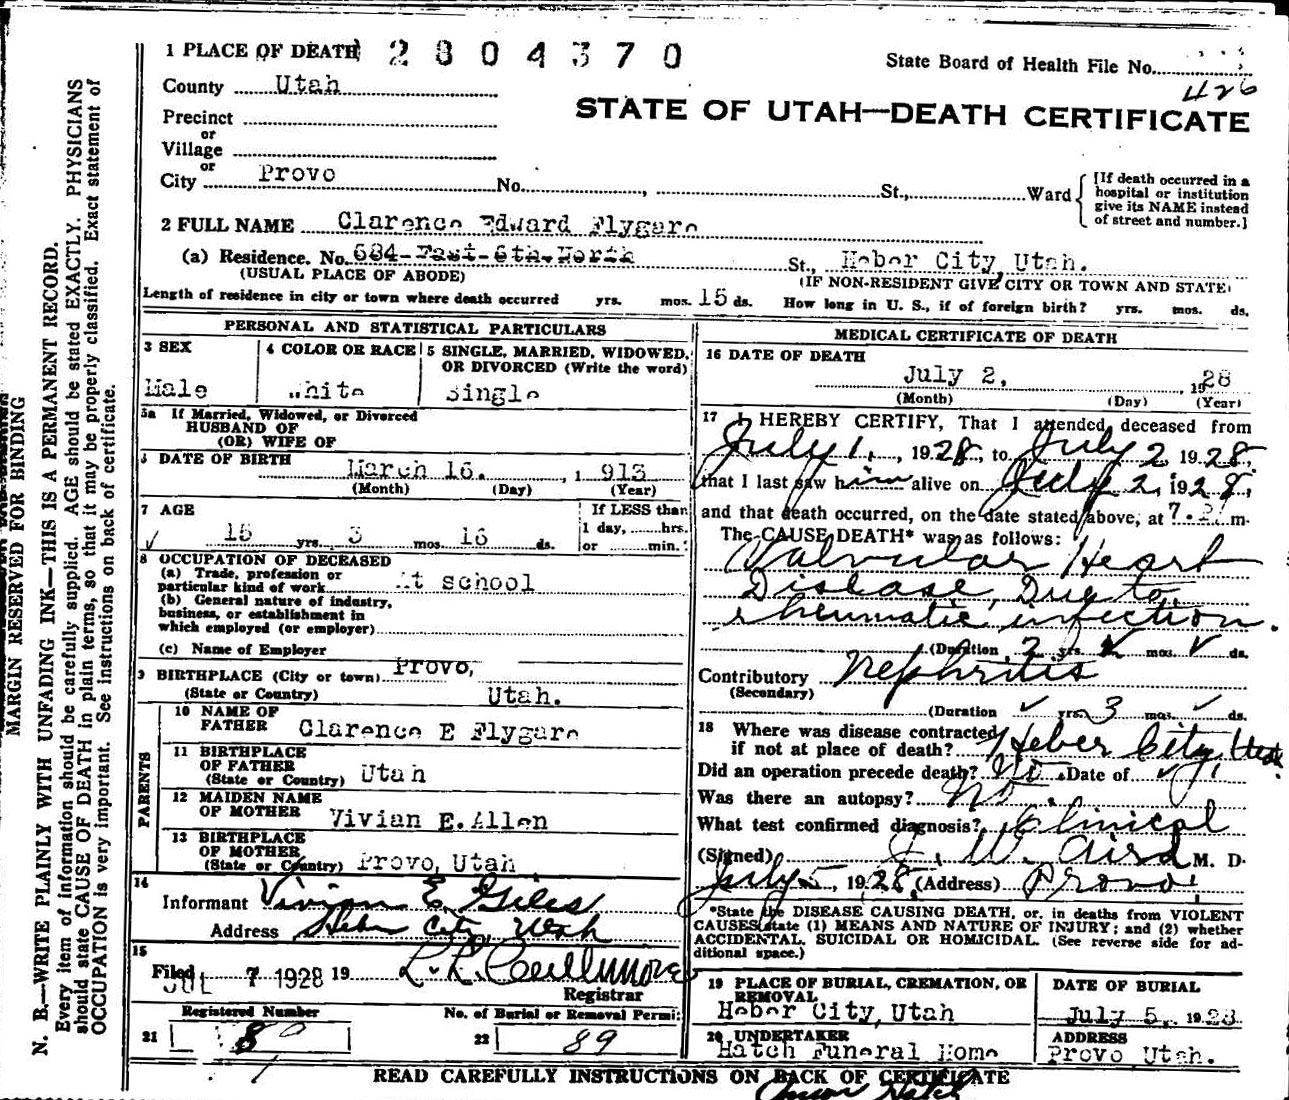 1 PLACE OF DEATH 2804370
State Board of Health File No.
426
County Utah
STATE OF UTAH—DEATH CERTIFICATE
Precinct
or
Village
or
City Provo No. , St., Ward
[If death occurred in a
hospital or institution
give its NAME instead
of street and number.]
2 FULL NAME Clarence Edward Flygare
(a) Residence. No. 684-East-6th.North St., Heber City, Utah.
(USUAL PLACE OF ABODE) (IF NON-RESIDENT GIVE CITY OR TOWN AND STATE)
Length of residence in city or town where death occurred yrs. mos. 15 ds. How long in U. S., if of foreign birth? yrs. mos. ds.
PERSONAL AND STATISTICAL PARTICULARS
3 SEX
Male
4 COLOR OR RACE
White
5 SINGLE, MARRIED, WIDOWED,
OR DIVORCED (Write the word)
Single
5a If Married, Widowed, or Divorced
HUSBAND OF
(OR) WIFE OF
DATE OF BIRTH
March 16. , 1 913
(Month) (Day) (Year)
7 AGE
15 yrs. 3 mos. 16 ds.
If LESS than
1 day, hrs.
or min.
8 OCCUPATION OF DECEASED
(a) Trade, profession or
particular kind of work At school
(b) General nature of industry,
business, or establishment in
which employed (or employer)
(c) Name of Employer
9 BIRTHPLACE (City or town) Provo,
(State or Country) Utah.
PARENTS
10 NAME OF
FATHER Clarence E Flygare
11 BIRTHPLACE
OF FATHER
(State or Country) Utah
12 MAIDEN NAME
OF MOTHER Vivian E. Allen
13 BIRTHPLACE
OF MOTHER
(State or Country) Provo, Utah
14
Informant Vivian E. Giles
Address Heber City, Utah
15
Filed JUL 7 1928 19 L. L. Cullimore
Registrar
Registered Number
No. of Burial or Removal Permit
21
22 89
MEDICAL CERTIFICATE OF DEATH
16 DATE OF DEATH
July 2, , 1928
(Month) (Day) (Year)
17 I HEREBY CERTIFY, That I attended deceased from
July 1, , 1928, to July 2, 1928,
that I last saw him alive on July 2, 1928,
and that death occurred, on the date stated above, at 7. m.
The CAUSE DEATH* was as follows:
Valvular Heart
Disease, Due to
rheumatic infection.
(Duration 2 yrs. ✓ mos. ✓ ds.
Contributory Nephritis
(Secondary)
(Duration ✓ yrs. 3 mos. ✓ ds.
18 Where was disease contracted
if not at place of death? Heber City, Utah
Did an operation precede death? No Date of ✓
Was there an autopsy? No.
What test confirmed diagnosis? Clinical
(Signed) J. W. Aird M. D.
July 5, 1928, (Address) Provo
*State the DISEASE CAUSING DEATH, or, in deaths from VIOLENT
CAUSES, state (1) MEANS AND NATURE OF INJURY; and (2) whether
ACCIDENTAL, SUICIDAL OR HOMICIDAL. (See reverse side for ad-
ditional space.)
19 PLACE OF BURIAL, CREMATION, OR
REMOVAL
Heber City, Utah
DATE OF BURIAL
July 5, 1928
20 UNDERTAKER
Hatch Funeral Home
ADDRESS
Provo Utah.
READ CAREFULLY INSTRUCTIONS ON BACK OF CERTIFICATE
MARGIN RESERVED FOR BINDING
N. B.—WRITE PLAINLY WITH UNFADING INK—THIS IS A PERMANENT RECORD.
Every item of information should be carefully supplied. AGE should be stated EXACTLY. PHYSICIANS
should state CAUSE OF DEATH in plain terms, so that it may be properly classified. Exact statement of
OCCUPATION is very important. See instructions on back of certificate.